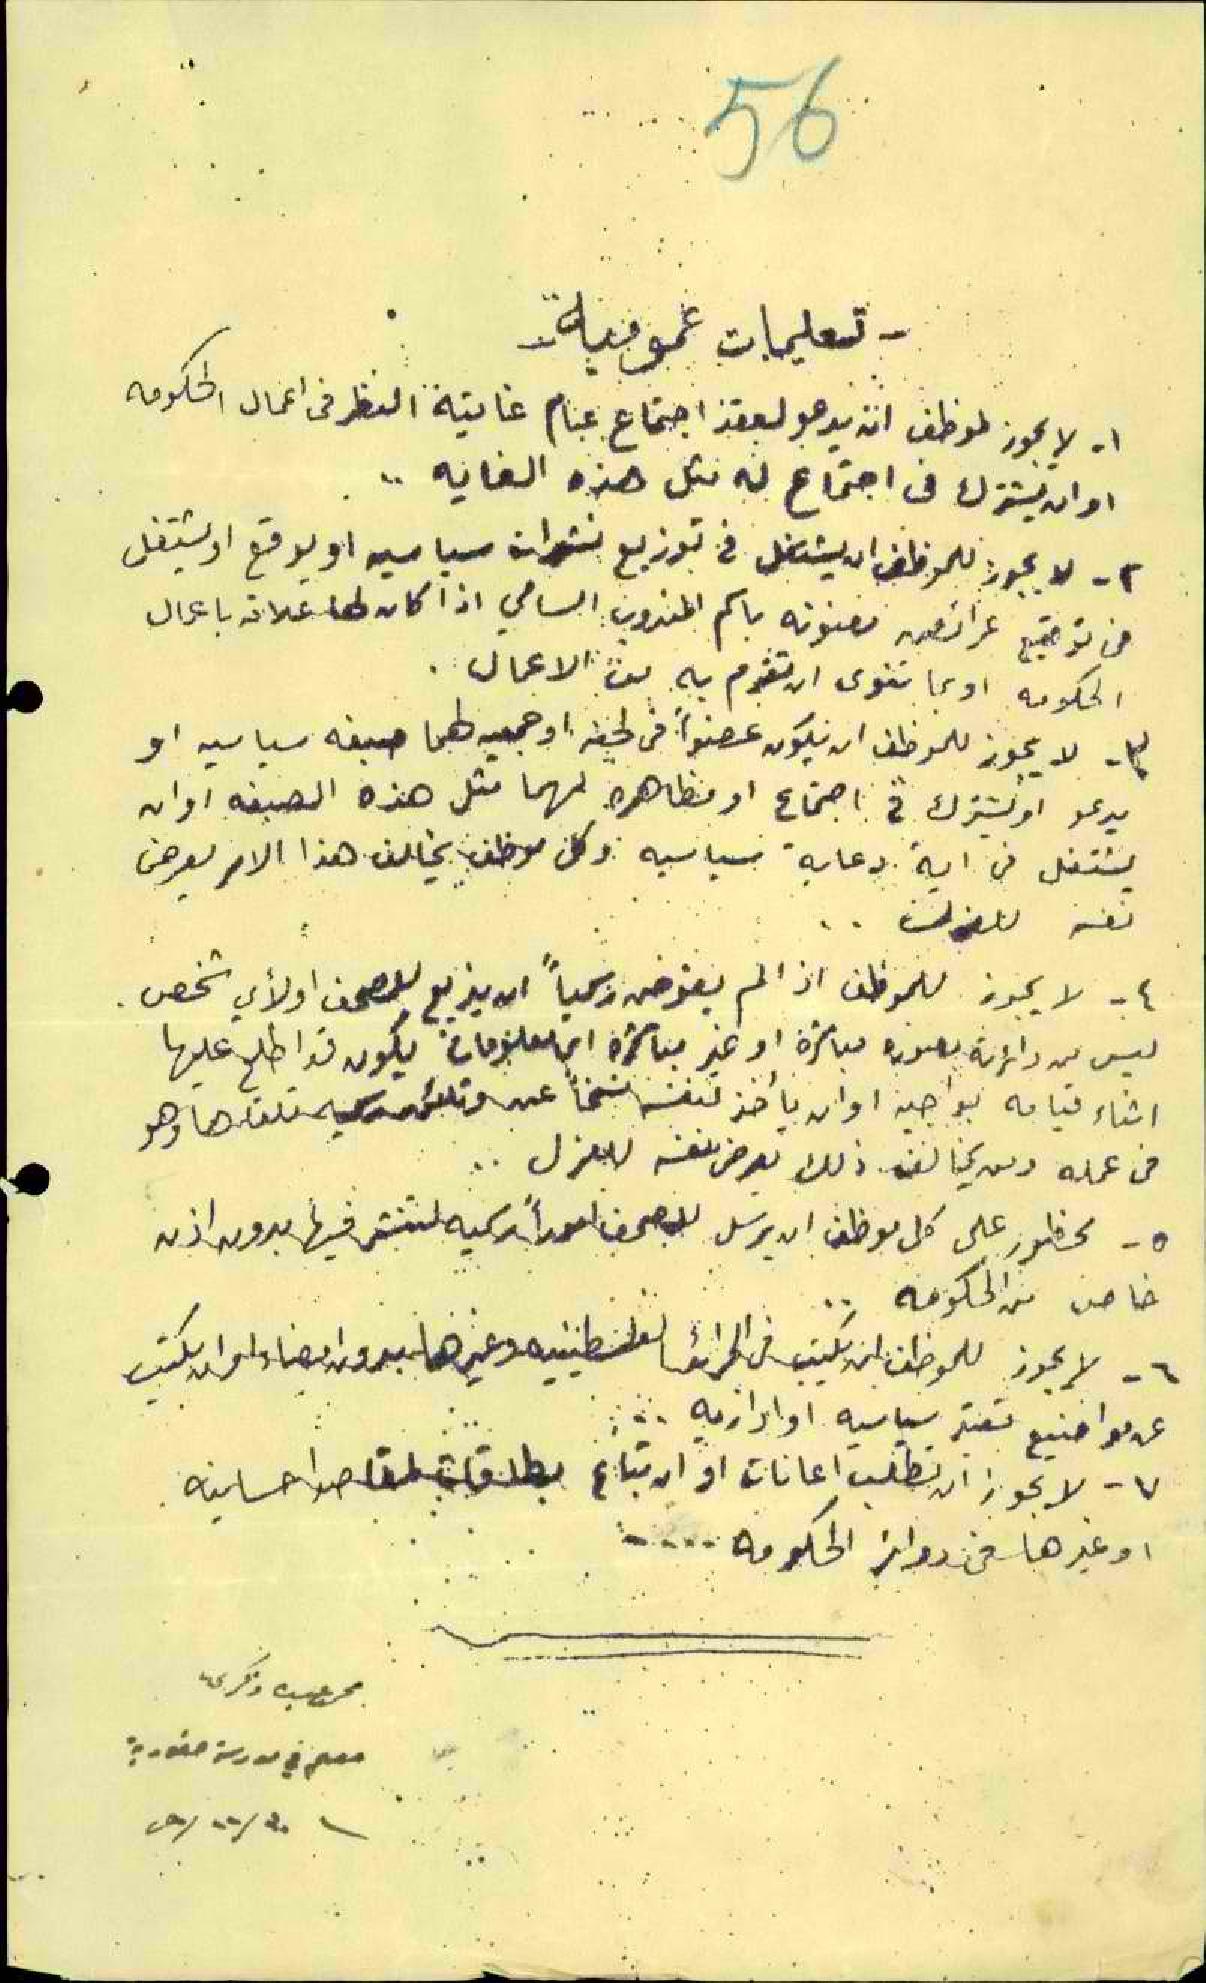 56
- تعليمات عمومية -
١- لا يجوز لموظف ان يدعو لعقد اجتماع عام غايته النظر في اعمال الحكومه
او ان يشترك في اجتماع له مثل هذه الغايه ..
٢- لا يجوز للموظف ان يشتغل في توزيع نشرات سياسيه او يوقع او يشتغل
في توقيع عرائض معنونه باسم المندوب السامي اذا كان لها علاقه باعمال
الحكومه او بما تنوى ان تقوم به من الاعمال .
٣- لا يجوز للموظف ان يكون عضواً في لجنه او جمعيه لهما صبغه سياسيه او
يدعو او يشترك في اجتماع او مظاهره لهما مثل هذه الصبغه او ان
يشتغل في اية دعاية سياسيه وكل موظف يخالف هذا الامر يعرض
نفسه للعزل ..
٤- لا يجوز للموظف اذا لم يفوض رسمياً ان يذيع للصحف او لأي شخص
ليس من دائرته بصوره مباشرة او غير مباشرة اية معلومات يكون قد اطلع عليها
اثناء قيامه بواجبه او ان يأخذ لنفسه نسخاً عن وثائق رسميه تلقاها وهو
في عمله ومن يخالف ذلك يعرض نفسه للعزل ..
٥- محظور على كل موظف ان يرسل للصحف اموراً رسميه لتنشر فيها بدون اذن
خاص من الحكومه ..
٦- لا يجوز للموظف ان يكتب في الجرائد الفلسطينيه وغيرها بدون امضاء او ان يكتب
عن مواضيع تعتبر سياسيه او اداريه ..
٧- لا يجوز ان تطلب اعانات او ان تباع بطاقات لمقاصد احسانيه
او غيرها في دوائر الحكومه ....
معلم في مدرسة صفورية